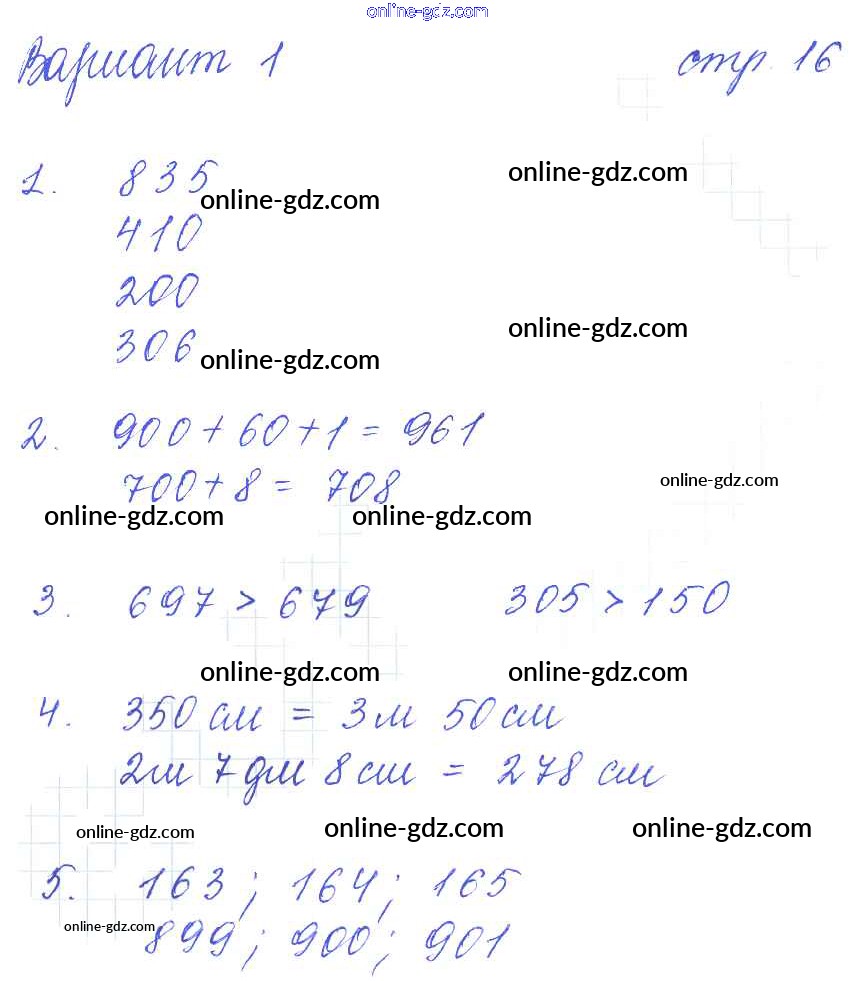 online-gdz.com
Вариант 1 стр. 16
1. 835
online-gdz.com
online-gdz.com
410
200
online-gdz.com
306
online-gdz.com
2. 900 + 60 + 1 = 961
700 + 8 = 708
online-gdz.com
online-gdz.com online-gdz.com
3. 697 > 679 305 > 150
online-gdz.com online-gdz.com
4. 350 см = 3 м 50 см
2 м 7 дм 8 см = 278 см
online-gdz.com online-gdz.com online-gdz.com
5. 163; 164; 165
online-gdz.com
899; 900; 901